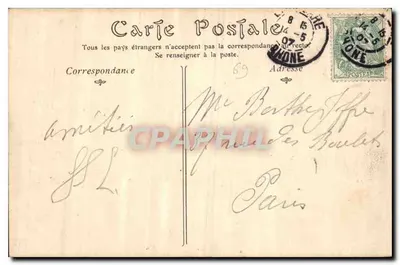 Carte Postale
Tous les pays étrangers n'acceptent pas la correspondance au recto
Se renseigner à la poste.
Correspondance
Adresse
59
8 15
14-5
07
RHONE
8 15
14-5
07
RHONE
CARTAPHILIE
amitiés
Mr Berthe
rue des Boulets
Paris